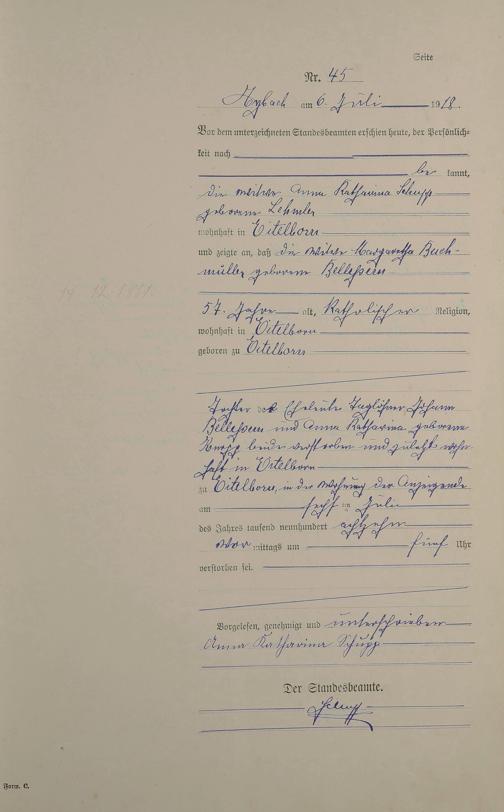 Seite
Nr. 45
Arzbach am 6. Juli 1918.
Vor dem unterzeichneten Standesbeamten erschien heute, der Persönlich-
keit nach
be kannt,
die Witwe Anna Katharina Schupp
geborene Lehmler
wohnhaft in Eitelborn
und zeigte an, daß die Witwe Margaretha Buch-
müller geborene
57 Jahre alt, Katholischer Religion,
wohnhaft in Eitelborn
geboren zu Eitelborn
Tochter der Eheleute Taglöhner Johann
und Anna Katharina geborene
beide verstorben und zuletzt wohn-
haft in Eitelborn
zu Eitelborn, in der Wohnung der Anzeigende
am sechs ten Juli
des Jahres tausend neunhundert achtzehn
Vor mittags um fünf Uhr
verstorben sei.
Vorgelesen, genehmigt und unterschrieben
Anna Katharina Schupp
Der Standesbeamte.
Form. C.